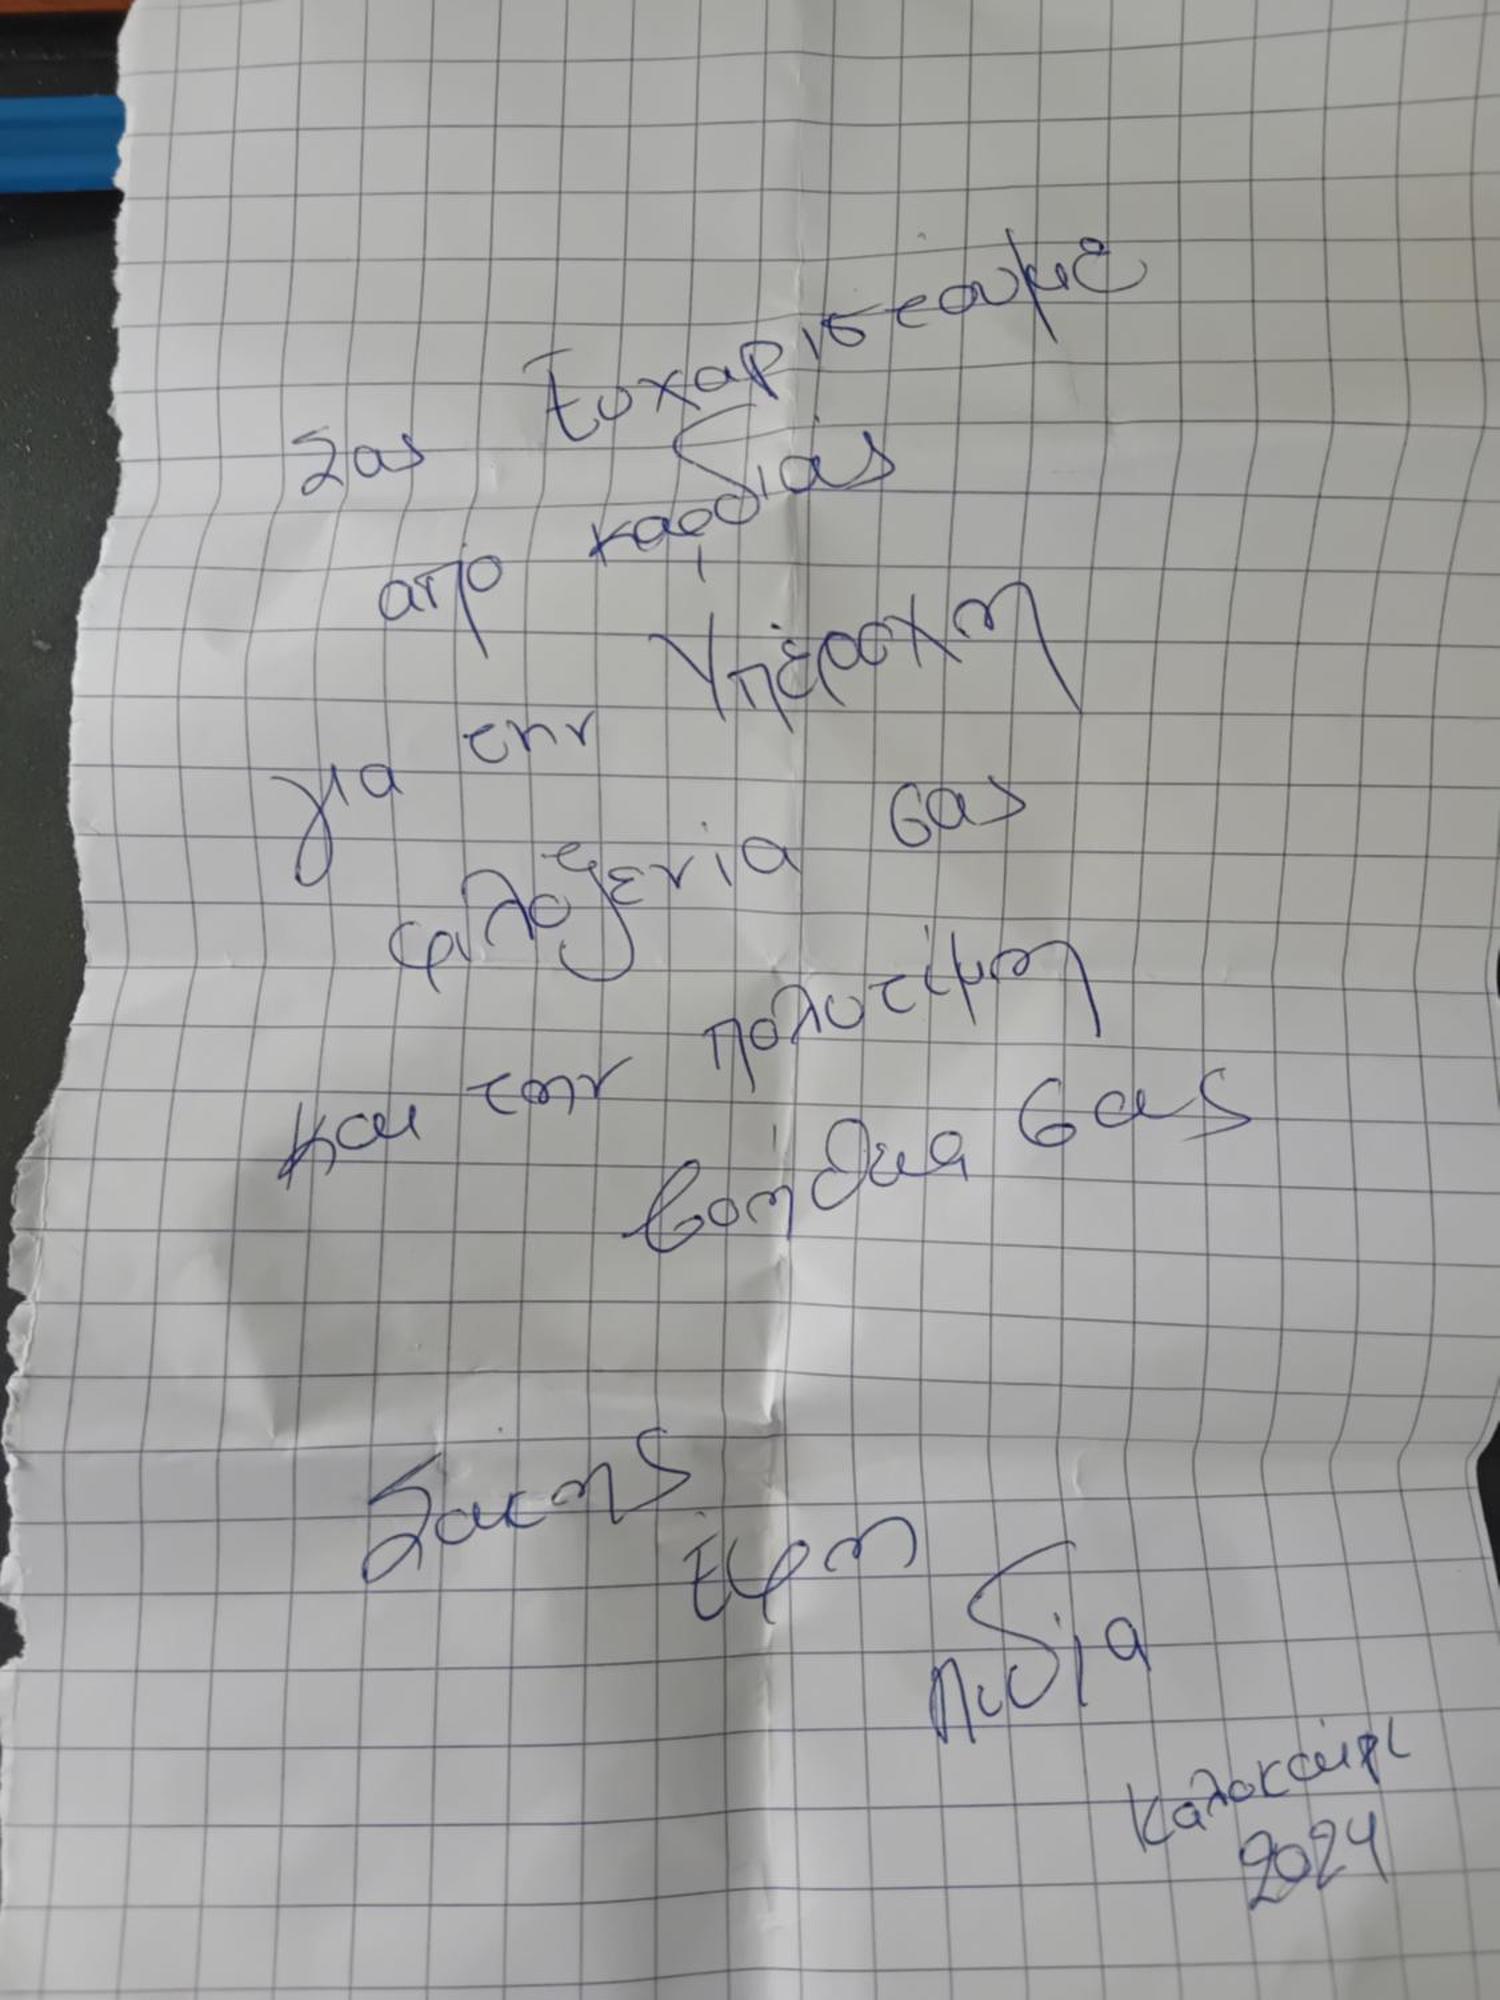 Σας Ευχαριστουμε
απο καρδιάς
για την Υπέροχη
φιλοξενία σας
και την πολυτίμη
βοήθεια σας
Σακης
Έφη
Λυδία
Καλοκαίρι
2024